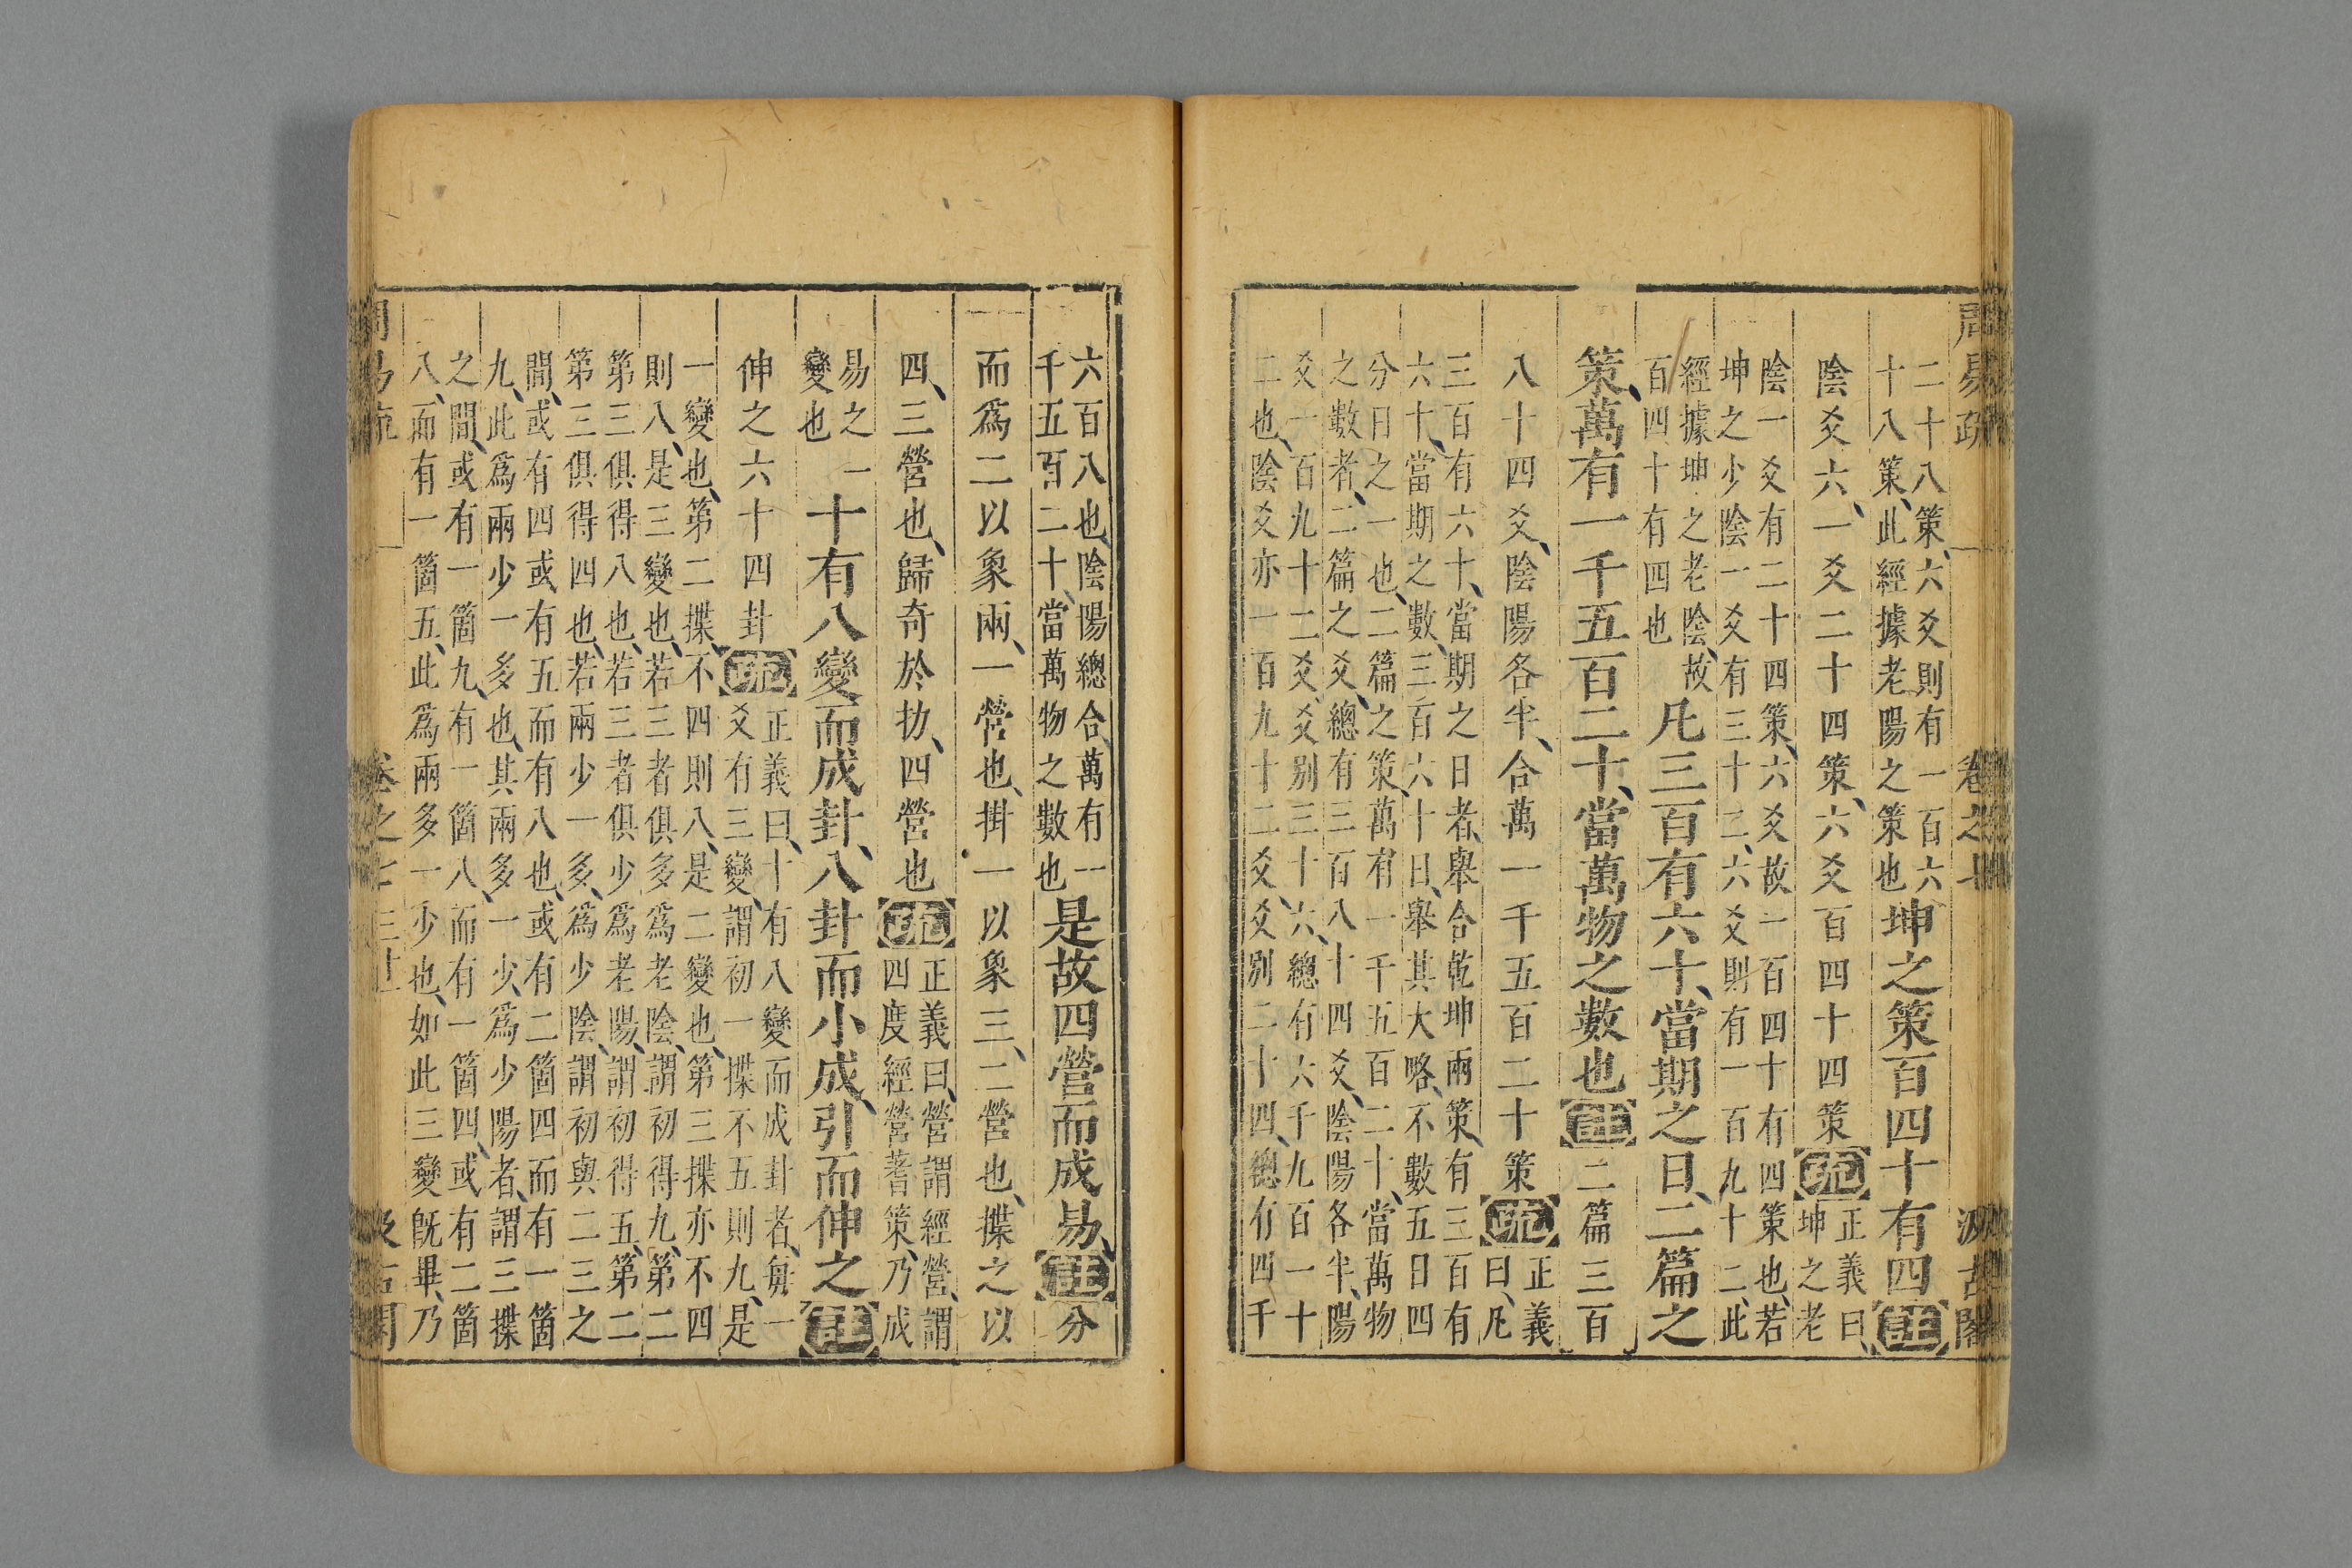 周易疏 卷之七 汲古閣
二十八策、六爻則有一百六
十八策、此經據老陽之策也
坤之策百四十有四 注
陰爻六、一爻二十四策、六爻百四十四策 疏
正義曰、
坤之老
陰一爻有二十四策、六爻故一百四十有四策也、若
坤之少陰一爻有三十二、六爻則有一百九十二、此
經據坤之老陰、故
百四十有四也
凡三百有六十、當期之日、二篇之
策、萬有一千五百二十、當萬物之數也 注 二篇三百
八十四爻、陰陽各半、合萬一千五百二十策 疏
正義
曰、凡
三百有六十、當期之日者、舉合乾坤兩策、有三百有
六十、當期之數、三百六十日、舉其大略、不數五日四
分日之一也、二篇之策、萬有一千五百二十、當萬物
之數者、二篇之爻、總有三百八十四爻、陰陽各半、陽
爻一百九十二爻、爻別三十六、總有六千九百一十
二也、陰爻亦一百九十二爻、爻別二十四、總有四千
六百八也、陰陽總合、萬有一
千五百二十、當萬物之數也
是故四營而成易、注 分
而爲二以象兩、一營也、掛一以象三、二營也、揲之以
四、三營也、歸奇於扐、四營也 疏
正義曰、營謂經營、謂
四度經營蓍策、乃成
易之一
變也
十有八變而成卦、八卦而小成、引而伸之 注
伸之六十四卦 疏
正義曰、十有八變而成卦者、每一
爻有三變、謂初一揲不五則九、是
一變也、第二揲、不四則八、是二變也、第三揲亦不四
則八、是三變也、若三者俱多爲老陰、謂初得九、第二
第三俱得八也、若三者俱少爲老陽、謂初得五、第二
第三俱得四也、若兩少一多、爲少陰、謂初與二三之
間、或有四或有五而有八也、或有二箇四而有一箇
九、此爲兩少一多也、其兩多一少、爲少陽者、謂三揲
之間、或有一箇九、有一箇八、而有一箇四、或有二箇
八、而有一箇五、此爲兩多一少也、如此三變既畢、乃